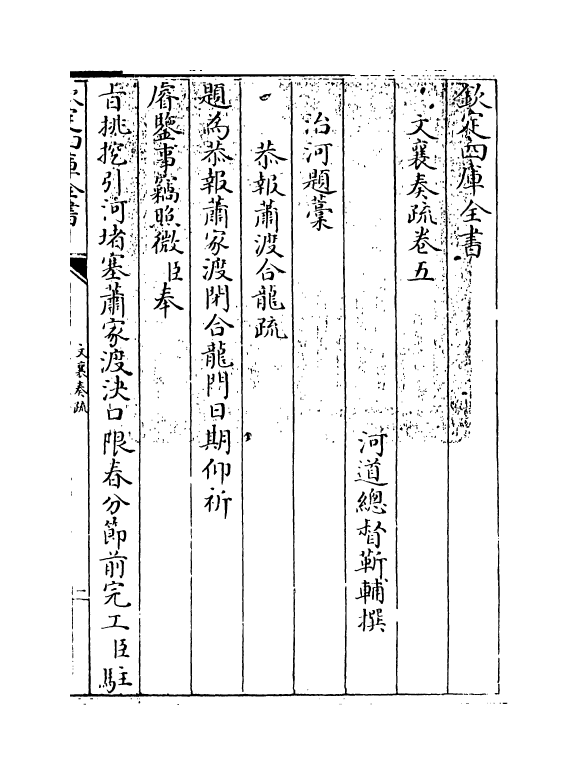 欽定四庫全書
文襄奏疏卷五
河道總督靳輔撰
治河題藁
恭報蕭渡合龍疏
題為恭報蕭家渡閉合龍門日期仰祈
睿鑒事竊照微臣奉
旨挑挖引河堵塞蕭家渡決口限春分節前完工臣駐
欽定四庫全書
文襄奏疏